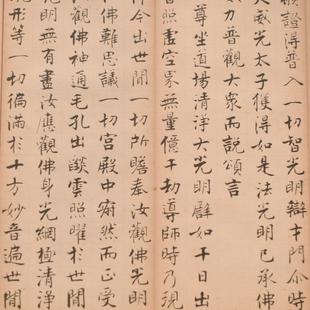 證得普入一切智光明辯才門尒時
大威光太子獲得如是法光明已承佛
力普觀大衆而說頌言
尊坐道場清淨大光明譬如千日出
普照虛空界無量億千劫導師時乃現
今出世間一切所瞻奉汝觀佛光明
佛難思議一切宮殿中寂然而正受
觀佛神通毛孔出燄雲照曜於世間
明無有盡汝應觀佛身光網極清淨
形等一切徧滿於十方妙音遍世間